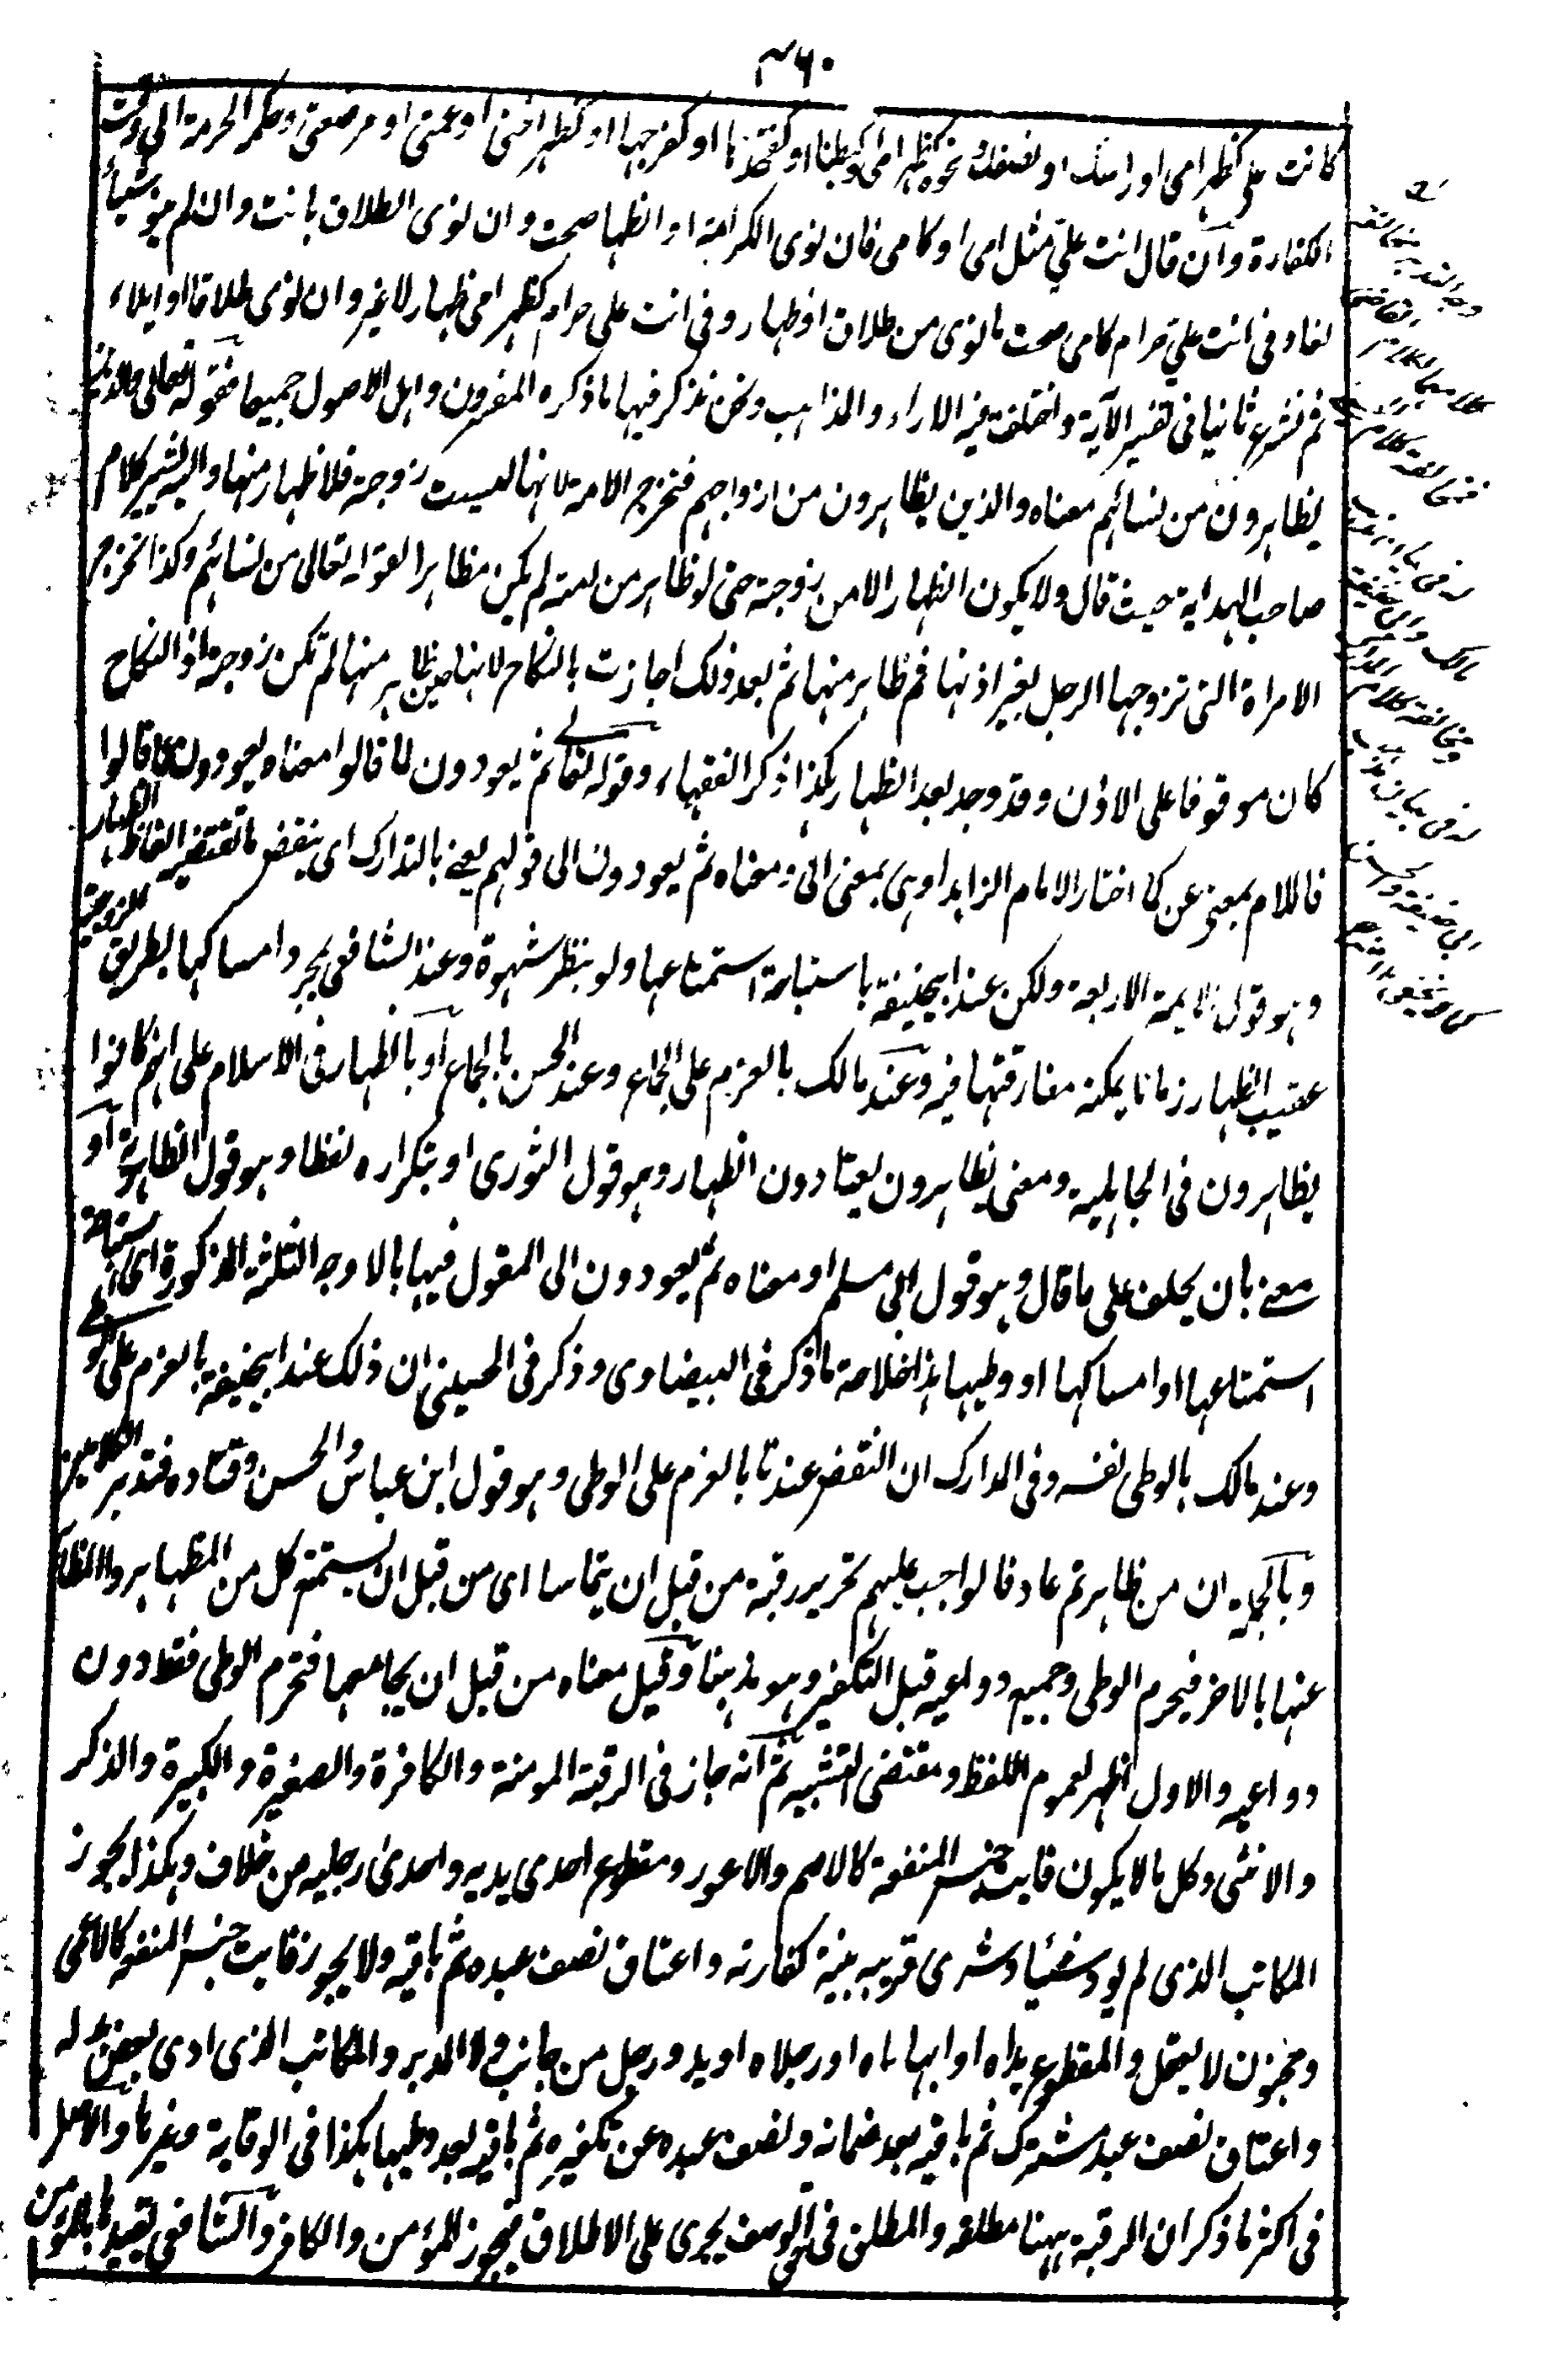 ٣٦٠
كانت على كظهر امى او راسك او نصفك نحوه كظهر امى او كبطنها او كفخذها او كفرجها او كظهر اختى او عمتى او مرضعتى وحكمه الحرمة الى وقت
الكفارة وان قال انت على مثل امى او كامى فان نوى الكرامة او الظهار صحت وان نوى الطلاق بانت وان لم ينو شيأ
لغا وفى انت على حرام كامى صحت ما نوى من طلاق او ظهار وفى انت على حرام كظهر امى ظهار لا غير وان نوى طلاقا او ايلاء
ثم نشرع ثانيا فى تفسير الآية واختلف فيه الاراء والمذاهب ونحن نذكر فيها ما ذكره المفسرون واهل الاصول جميعا فقوله تعالى والذين
يظاهرون من نسائهم معناه والذين يظاهرون من ازواجهم فتخرج الامة لانها ليست زوجة فلا ظهار منها واليه يشير كلام
صاحب الهداية حيث قال ولا يكون الظهار الا من زوجة حتى لو ظاهر من امته لم يكن مظاهرا لقوله تعالى من نسائهم وكذا تخرج
الامراة التى تزوجها الرجل بغير اذنها ثم ظاهر منها ثم بعد ذلك اجازت بالنكاح لانها حين ظاهر منها لم تكن زوجة اذ النكاح
كان موقوفا على الاذن وقد وجد بعد الظهار هكذا ذكر الفقهاء وقوله تعالى ثم يعودون لما قالوا معناه يعودون عما قالوا
فاللام بمعنى عن كما اختار الامام الزاهد او هى بمعنى الى ومعناه ثم يعودون الى قولهم يعنى بالتدارك اى ينقض ما تقتضيه الفاظ الظهار
وهو قول الايمة الاربعة ولكن عند ابيحنيفة باستباحة استمتاعها ولو بنظر شهوة وعند الشافعى بمجرد امساكها بطريق الزوجية
عقيب الظهار زمانا يمكنه مفارقتها فيه وعند مالك بالعزم على الجماع وعند الحسن بالجماع او بالظهار فى الاسلام على انهم كانوا
يظاهرون فى الجاهلية ومعنى يظاهرون يعتادون الظهار وهو قول الثورى او بتكراره لفظا وهو قول الظاهرية او
معنى بان يحلف على ما قال وهو قول ابى مسلم او معناه ثم يعودون الى المقول فيها بالاوجه الثلثة المذكورة اى استباحة
استمتاعها او امساكها او وطيها هذا خلاصة ما ذكر فى البيضاوى وذكر فى الحسينى ان ذلك عند ابيحنيفة بالعزم على الوطى
وعند مالك بالوطى نفسه وفى المدارك ان النقض عندنا بالعزم على الوطى وهو قول ابن عباس والحسن وقتاده فتدبر الكلامين
وبالجملة ان من ظاهر ثم عاد فالواجب عليهم تحرير رقبة من قبل ان يتماسا اى من قبل ان يستمتع كل من المظاهر والمظاهر
عنها بالاخر فيحرم الوطى وجميع دواعيه قبل التكفير وهو مذهبنا وقيل معناه من قبل ان يجامعها فتحرم الوطى فقط دون
دواعيه والاول اظهر لعموم اللفظ ومقتضى التشبيه ثم انه جاز فى الرقبة المومنة والكافرة والصغيرة والكبيرة والذكر
والانثى وكل ما لا يكون فايت جنس المنفعة كالاصم والاعور ومقطوع احدى يديه واحدى رجليه من خلاف وهكذا يجوز
المكاتب الذى لم يود شيئا وشرى قريبه بنية كفارته واعتاق نصف عبده ثم باقيه ولا يجوز فايت جنس المنفعة كالاعمى
ومجنون لا يعقل والمقطوع يداه او ابهاماه او رجلاه او يد ورجل من جانب ولا المدبر والمكاتب الذى ادى بعض بدله
واعتاق نصف عبد مشترك ثم باقيه بعد ضمانه ونصف عبده عن تكفيره ثم باقيه بعد وطيها هكذا فى الوقاية وغيرها والاصل
فى اكثر ما ذكر ان الرقبة ههنا مطلقة والمطلق فى حق الوصف يجرى على الاطلاق فيجوز المؤمن والكافر والشافعى يقيدها بالمؤمن